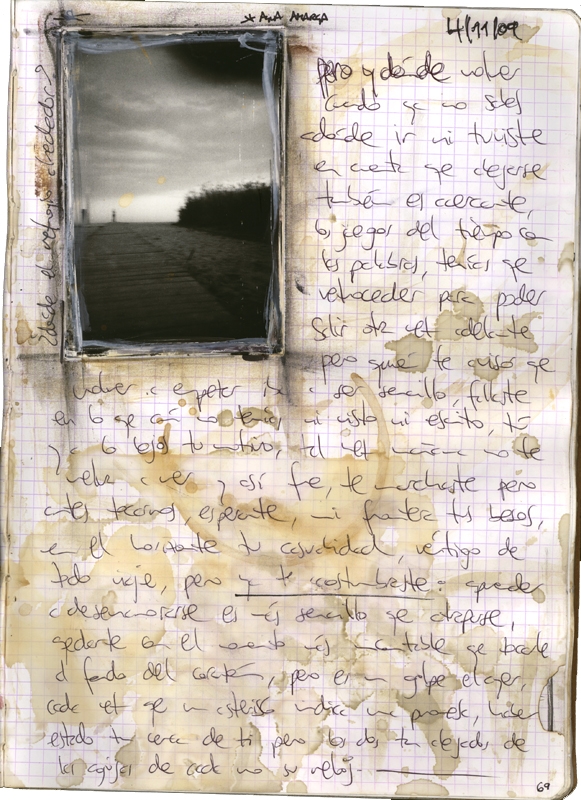 * ANA AMARGA
4/11/09
pero y dónde volver
cuando ya no sabes
dónde ir ni tuviste
en cuenta que dejarse
también es acercarte,
los juegos del tiempo con
las palabras, tenías que
retroceder para poder
salir otra vez adelante
pero quién te avisó que
volver a empezar a ser sencillo, fallaste
en lo que no tenías ni visto ni escrito, tú
y a lo lejos tu motivo, tal vez mañana no te
vuelva a ver y así fue, te marchaste pero
antes tocarnos, esperarte, mi frontera tus besos,
en el horizonte tu casualidad, vértigo de
todo viaje, pero ya te acostumbraste a aprender
a desenamorarse es más sencillo que
quedarte con el momento más que
al fondo del corazón, pero es un golpe el ayer,
cada vez que un asterisco indica una promesa, haber
estado tan cerca de ti pero los dos tan alejados de
las agujas de cada uno su reloj
69